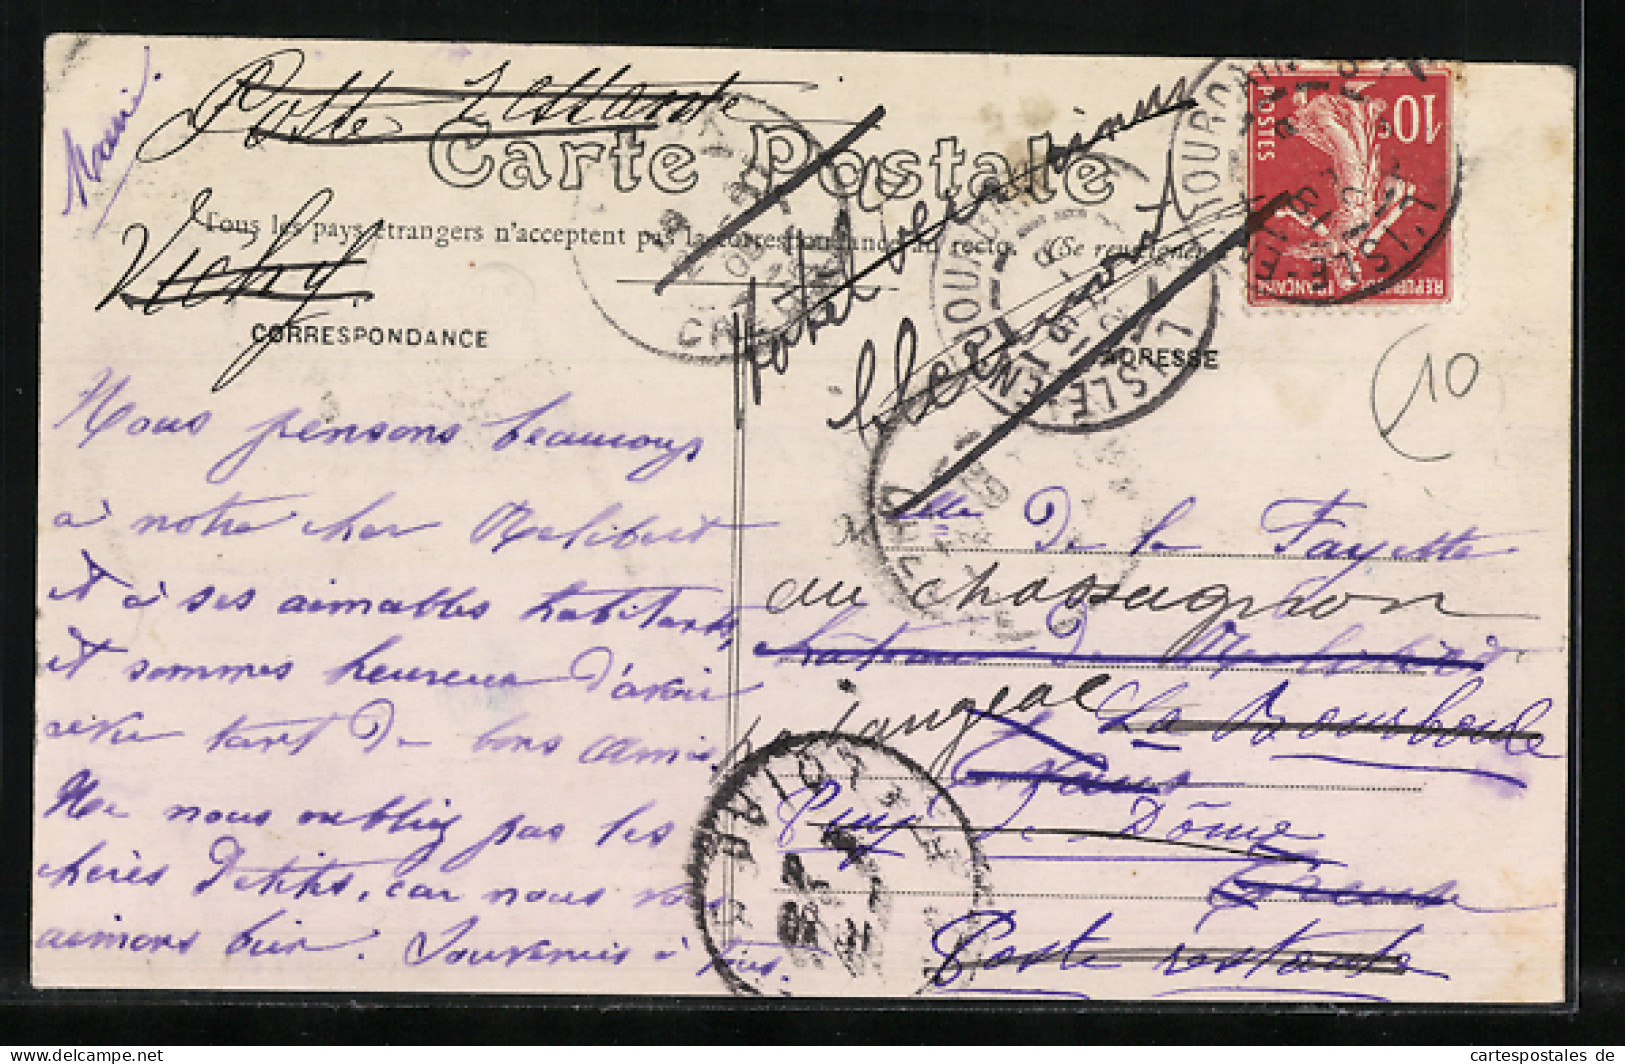 Marie.
Poste Restante
Vichy.
Carte Postale
Tous les pays étrangers n'acceptent pas la correspondance au recto. (Se renseigner
CORRESPONDANCE
ADRESSE
10c
POSTES
REPUBLIQUE FRANÇAISE
10
Nous pensons beaucoup
à notre cher
et à ses aimables habitants,
et sommes heureux d'avoir
tant de bons amis
Ne nous oubliez pas les
chères Petites, car nous vous
aimons bien. Souvenirs à tous.
hotel
Clermont
Melle De la Fayette
au chassagnon
château de
La Bourboule
Puy de Dôme
Creuse
Poste restante
cartespostales de